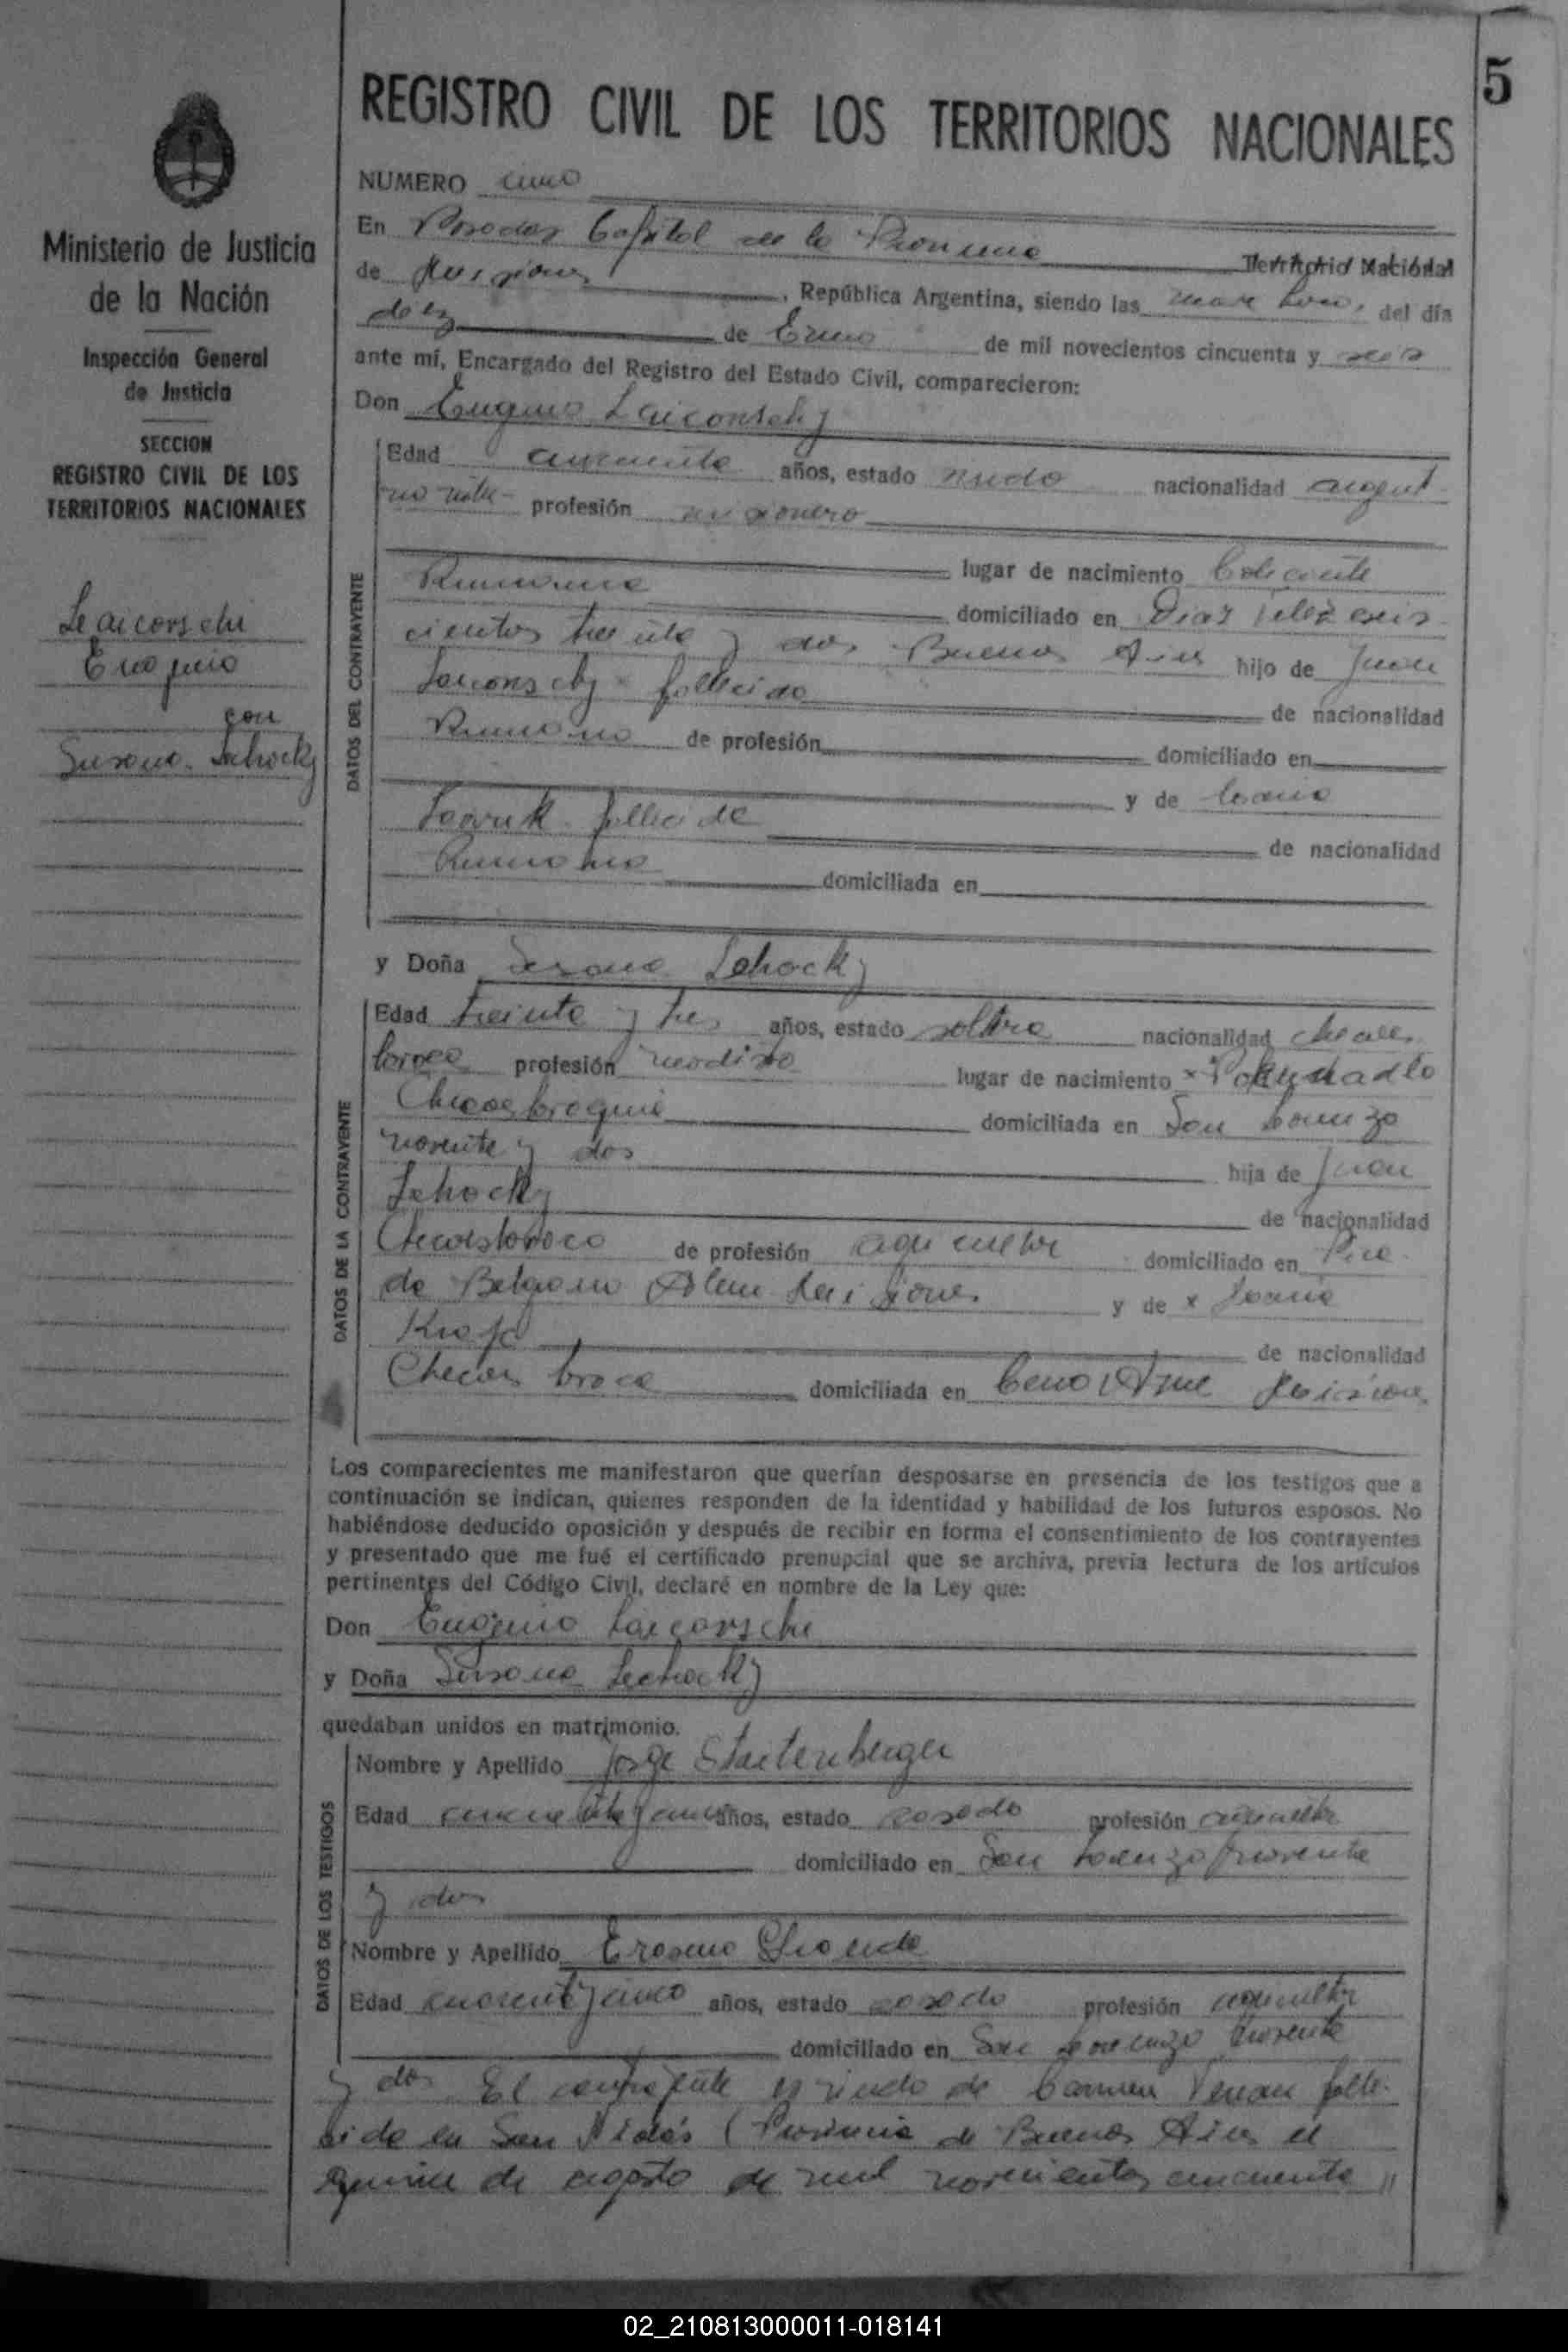 5
REGISTRO CIVIL DE LOS TERRITORIOS NACIONALES
Ministerio de Justicia
de la Nación
Inspección General
de Justicia
SECCION
REGISTRO CIVIL DE LOS
TERRITORIOS NACIONALES
Laicorschi
Eugenio
con
Susana Lehocky
NUMERO cinco
En Posadas Capital de la Provincia Territorio Nacional
de Misiones, República Argentina, siendo las nueve horas del día
diez de Enero de mil novecientos cincuenta y seis
ante mí, Encargado del Registro del Estado Civil, comparecieron:
Don Eugenio
Edad años, estado viudo nacionalidad argent
profesión
lugar de nacimiento
domiciliado en Diaz Velez seis
cientos treinta y dos Buenos Aires hijo de Juan
fallecido de nacionalidad
Rumano de profesión domiciliado en
y de
fallecida de nacionalidad
Rumana domiciliada en
y Doña Susana Lehocky
Edad treinta y tres años, estado soltera nacionalidad checoes
lovaca profesión modista lugar de nacimiento
domiciliada en San Lorenzo
noventa y dos hija de Juan
Lehocky de nacionalidad
Checoslovaco de profesión agricultor domiciliado en Pica
da Belgrano Alem Misiones y de x Maria
de nacionalidad
Checoslovaca domiciliada en Misiones
Los comparecientes me manifestaron que querían desposarse en presencia de los testigos que a
continuación se indican, quienes responden de la identidad y habilidad de los futuros esposos. No
habiéndose deducido oposición y después de recibir en forma el consentimiento de los contrayentes
y presentado que me fué el certificado prenupcial que se archiva, previa lectura de los artículos
pertinentes del Código Civil, declaré en nombre de la Ley que:
Don Eugenio Laicorschi
y Doña Susana Lechocky
quedaban unidos en matrimonio.
Nombre y Apellido Jorge
Edad años, estado casado profesión agricultor
domiciliado en San Lorenzo noventa
y dos
Nombre y Apellido Erasmo
Edad cuarenta y cinco años, estado casado profesión agricultor
domiciliado en San Lorenzo noventa
y dos El contrayente es viudo de Carmen falle
cida en San (Provincia de Buenos Aires el
quince de agosto de mil novecientos cincuenta //
DATOS DEL CONTRAYENTE
DATOS DE LA CONTRAYENTE
DATOS DE LOS TESTIGOS
02_210813000011-018141